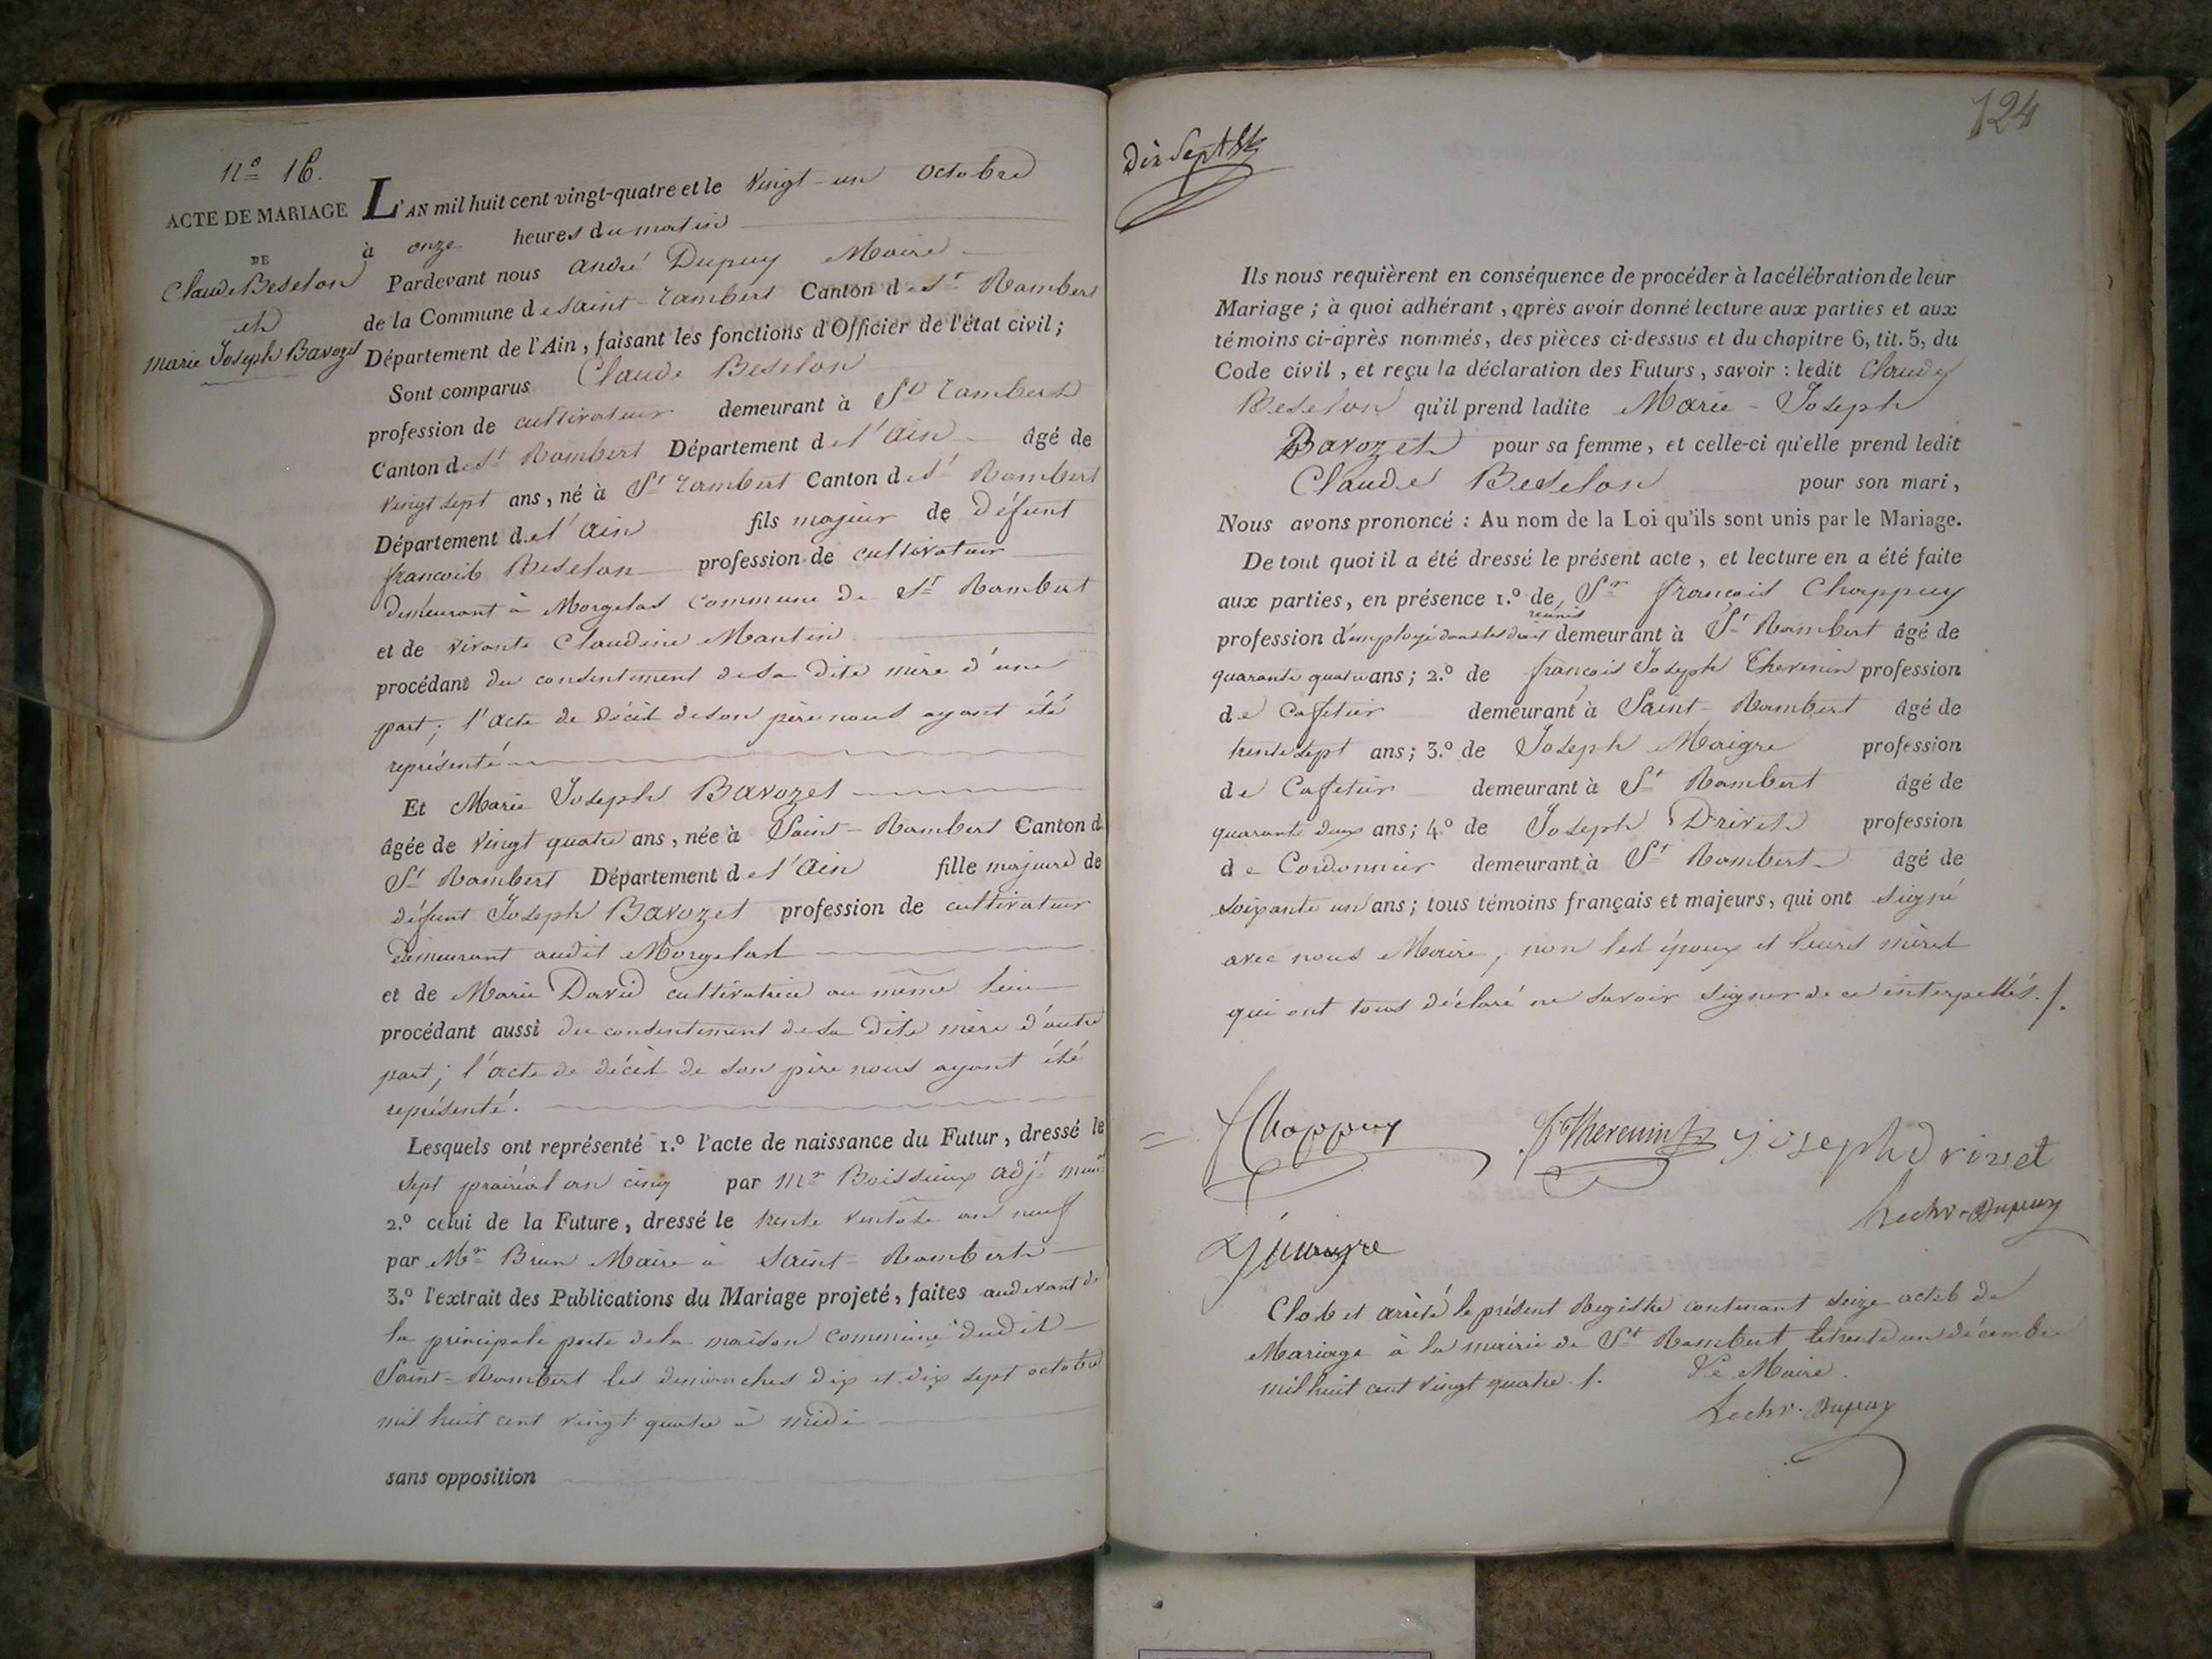 nº 16.
ACTE DE MARIAGE
DE
Claude Beselon
et
marie Joseph Bavozet
L'AN mil huit cent vingt-quatre et le vingt-un octobre
à onze heures du matin
Pardevant nous andré Dupuy Maire
de la Commune de saint-rambert Canton de St Rambert
Département de l'Ain, faisant les fonctions d'Officier de l'état civil;
Sont comparus Claude Beselon
profession de cultivateur demeurant à St rambert
Canton de St Rambert Département de l'Ain âgé de
vingt sept ans, né à St rambert Canton de St Rambert
Département de l'ain fils majeur de défunt
françois Beselon profession de cultivateur
demeurant à Morgelas Commune de St Rambert
et de vivante Claudine Martin
procédant du consentement de sa dite mère d'une
part; l'acte de décès de son père nous ayant été
représenté
Et Marie Joseph Bavozet
âgée de vingt quatre ans, née à Saint-Rambert Canton d
St Rambert Département de l'Ain fille majeure de
défunt Joseph Bavozet profession de cultivateur
demeurant audit Morgelas
et de Marie David cultivatrice au même lieu
procédant aussi du consentement de sa dite mère d'autre
part; l'acte de décès de son père nous ayant été
représenté.
Lesquels ont représenté 1.º l'acte de naissance du Futur, dressé le
sept prairéal an cinq par Mr Boissieux adjt munl
2.º celui de la Future, dressé le trente ventose an neuf
par Mr Brun Maire à Saint-Rambert
3.º l'extrait des Publications du Mariage projeté, faites audevant de
la principale porte de la maison commune dudit
Saint-Rambert les dimanches dix et dix sept octobre
mil huit cent vingt quatre à midi
sans opposition
124
Dix Sept
Ils nous requièrent en conséquence de procéder à la célébration de leur
Mariage; à quoi adhérant, après avoir donné lecture aux parties et aux
témoins ci-après nommés, des pièces ci-dessus et du chapitre 6, tit. 5, du
Code civil, et reçu la déclaration des Futurs, savoir: ledit Claude
Beselon qu'il prend ladite Marie-Joseph
Bavozet pour sa femme, et celle-ci qu'elle prend ledit
Claude Beselon pour son mari,
Nous avons prononcé: Au nom de la Loi qu'ils sont unis par le Mariage.
De tout quoi il a été dressé le présent acte, et lecture en a été faite
aux parties, en présence 1.º de Sr françois Chappuy
réunis
profession d'employé dans les droits demeurant à St Rambert âgé de
quarante quatre ans; 2.º de françois Joseph Thevenin profession
de Cafetier demeurant à Saint-Rambert âgé de
trente sept ans; 3.º de Joseph Maigre profession
de Cafetier demeurant à St Rambert âgé de
quarante deux ans; 4.º de Joseph Drivet profession
de Cordonnier demeurant à St Rambert âgé de
soixante un ans; tous témoins français et majeurs, qui ont signé
avec nous Maire, non les époux et leurs mères
qui ont tous déclaré ne savoir signer de ce interpellés./.
fChappuy fs Thevenin joseph drivet
Dupuy
j maigre
Clos et arrêté le présent Registre contenant seize actes de
Mariage à la mairie de St Rambert le trente un décembre
mil huit cent vingt quatre./. Le Maire.
Dupuy